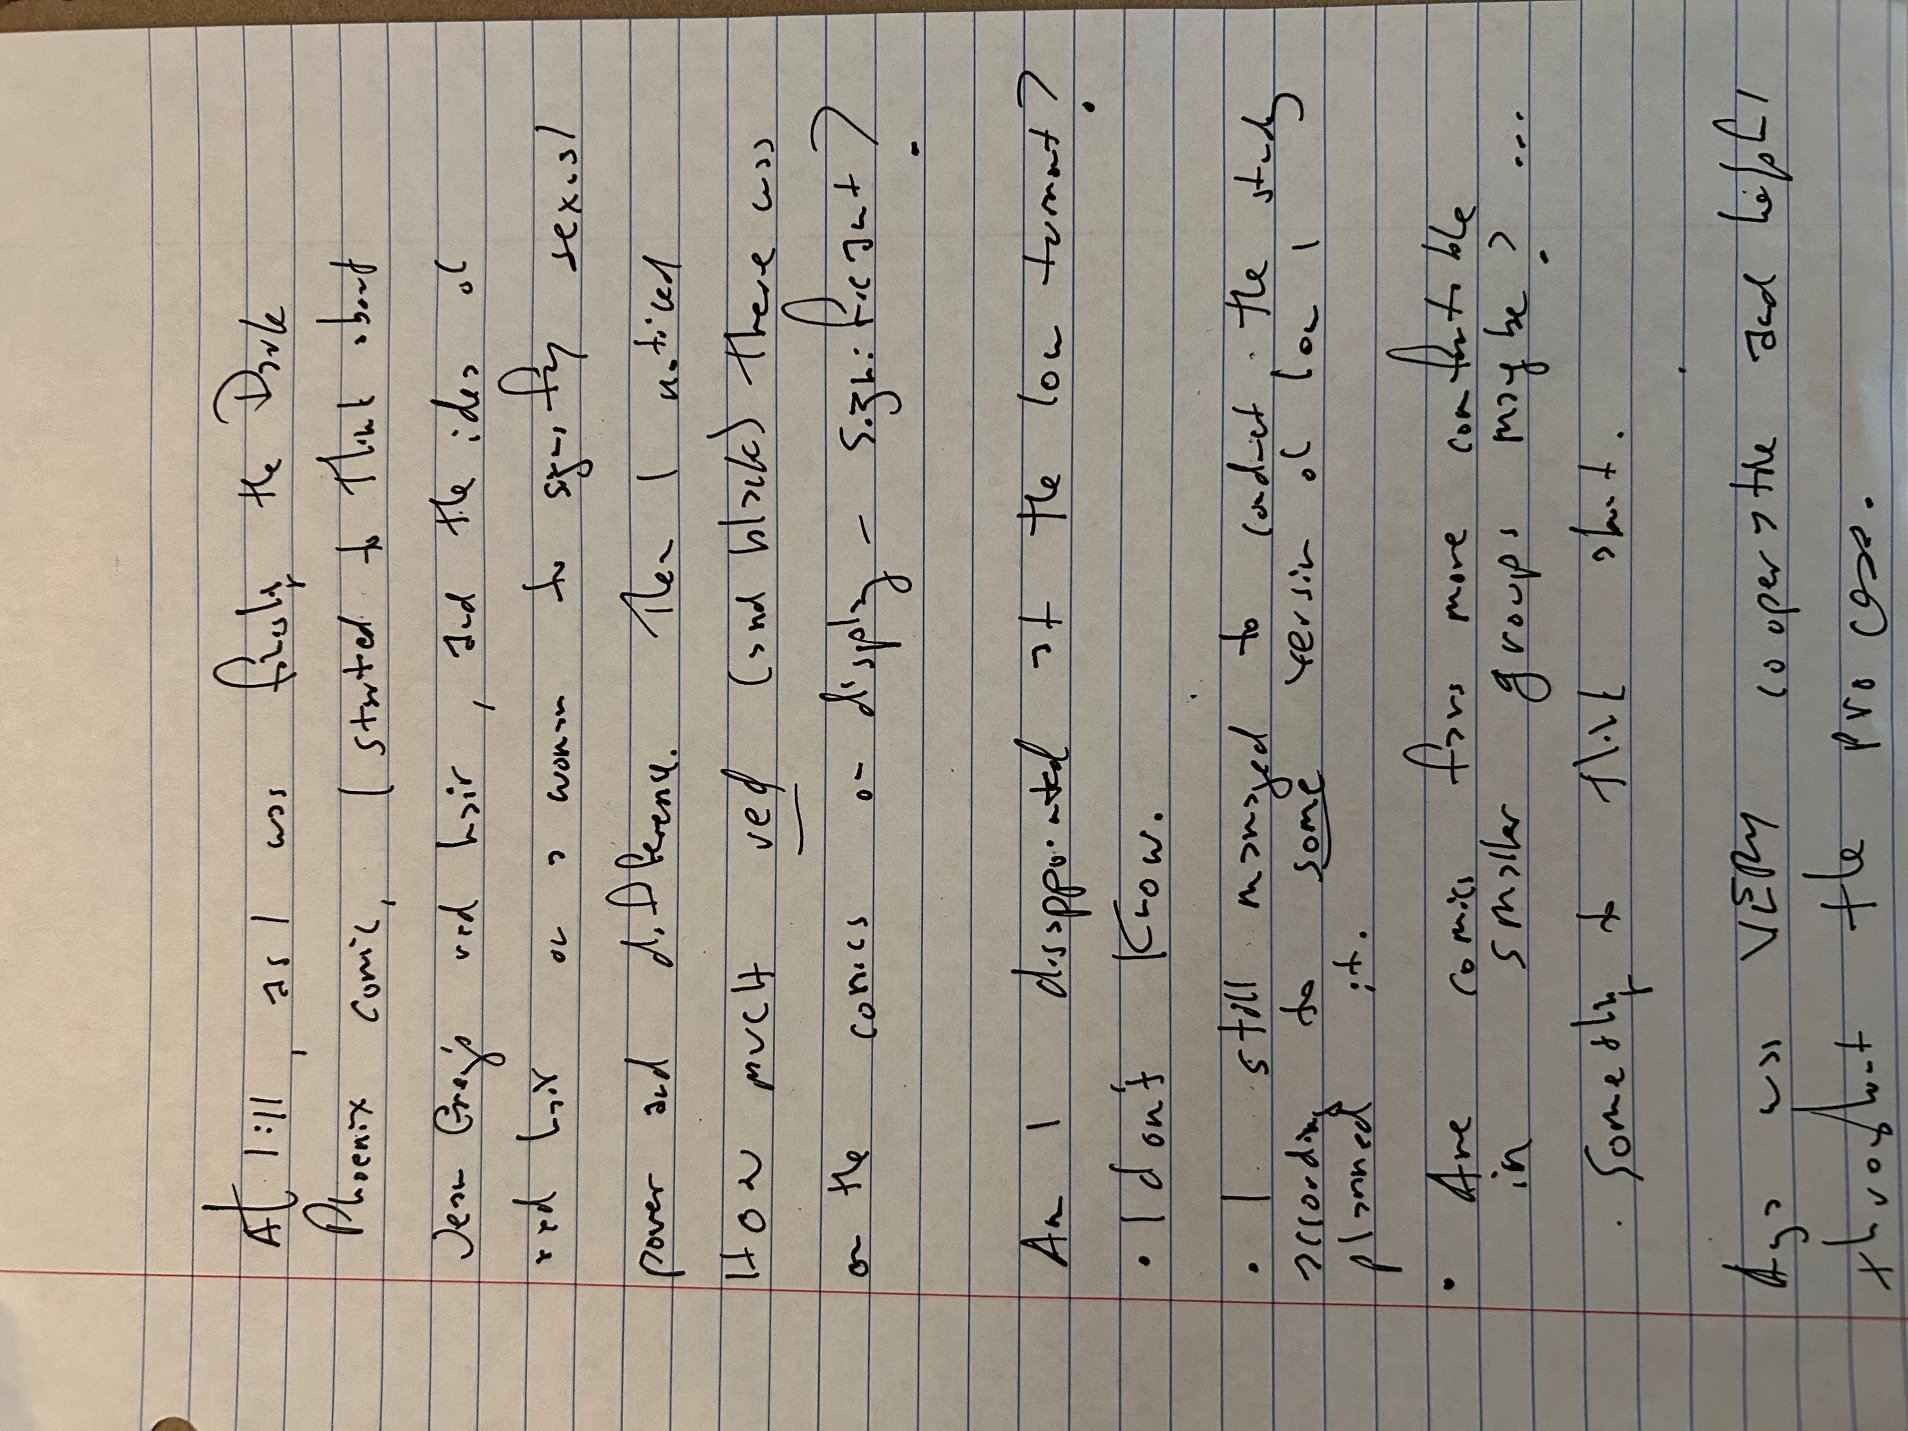 At 1:11, as I was finishing the Dark
Phoenix comic, I started to think about
Jean Grey's red hair, and the idea of
red hair on a woman to signify sexual
power and difference. Then I noticed
HOW MUCH red (and black) there was
on the comics on display – significant?
Am I disappointed at the low turnout?
• I don't know.
• I still managed to conduct the study
according to some version of how I
planned it.
• Are comics fans more comfortable
in smaller groups maybe? ...
. Something to think about.
Aya was VERY cooperative and helpful
throughout the process.